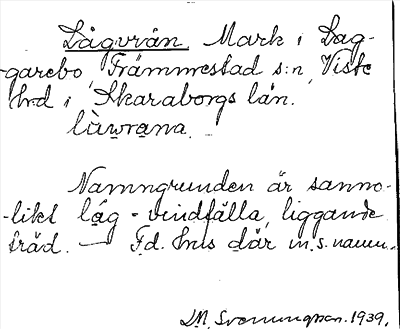 Lågvrån Mark i Dag-
-garebo, Främmestad s:n, Viste
hd i Skaraborgs län.
làwrana.
Namngrunden är sanno-
-likt låg - vindfälla, liggande
träd. — F.d. hus där m. s. namn.
D.M. Svenningsson. 1939.